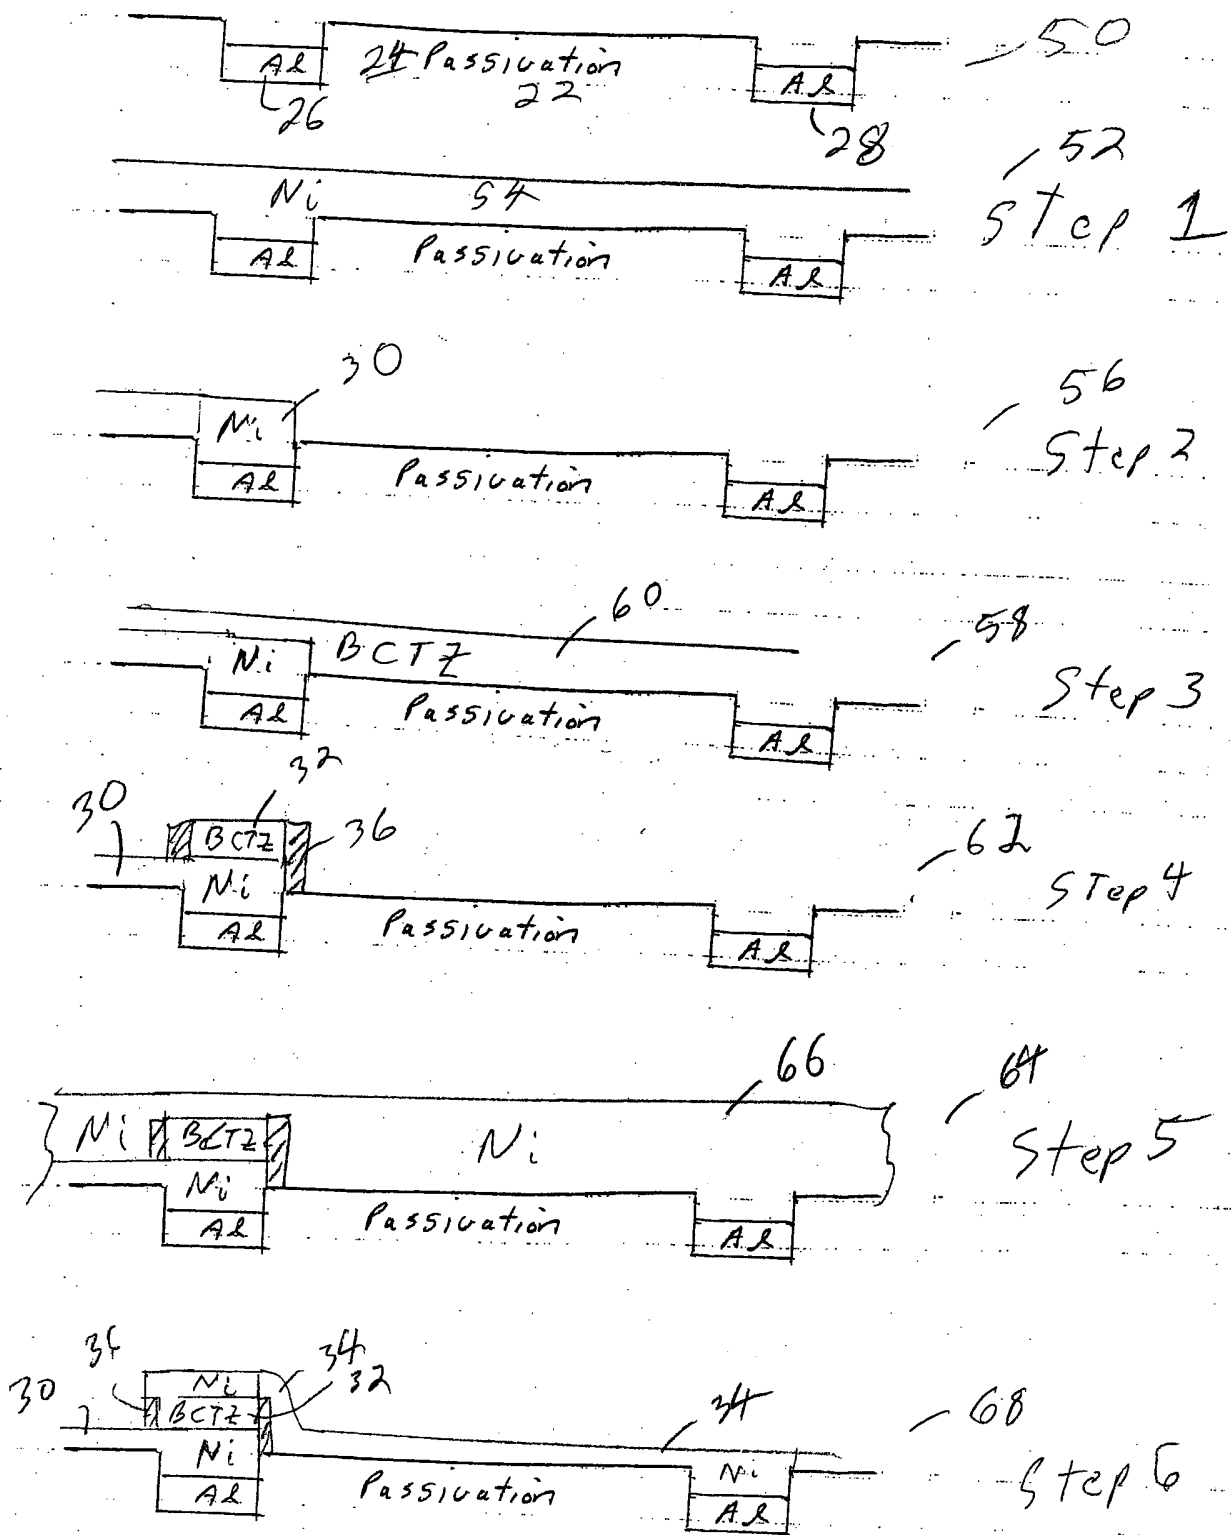 50
Al 24 Passivation Al
26 22 28
52
Ni 54 Step 1
Al Passivation Al
30 56
Ni Step 2
Al Passivation Al
60 58
Ni BCTZ Step 3
Al Passivation Al
32
30 BCTZ 36 62
Ni Step 4
Al Passivation Al
66 64
Ni BCTZ Ni Step 5
Ni
Al Passivation Al
36 34
30 Ni 32 34 68
BCTZ
Ni Ni Step 6
Al Passivation Al